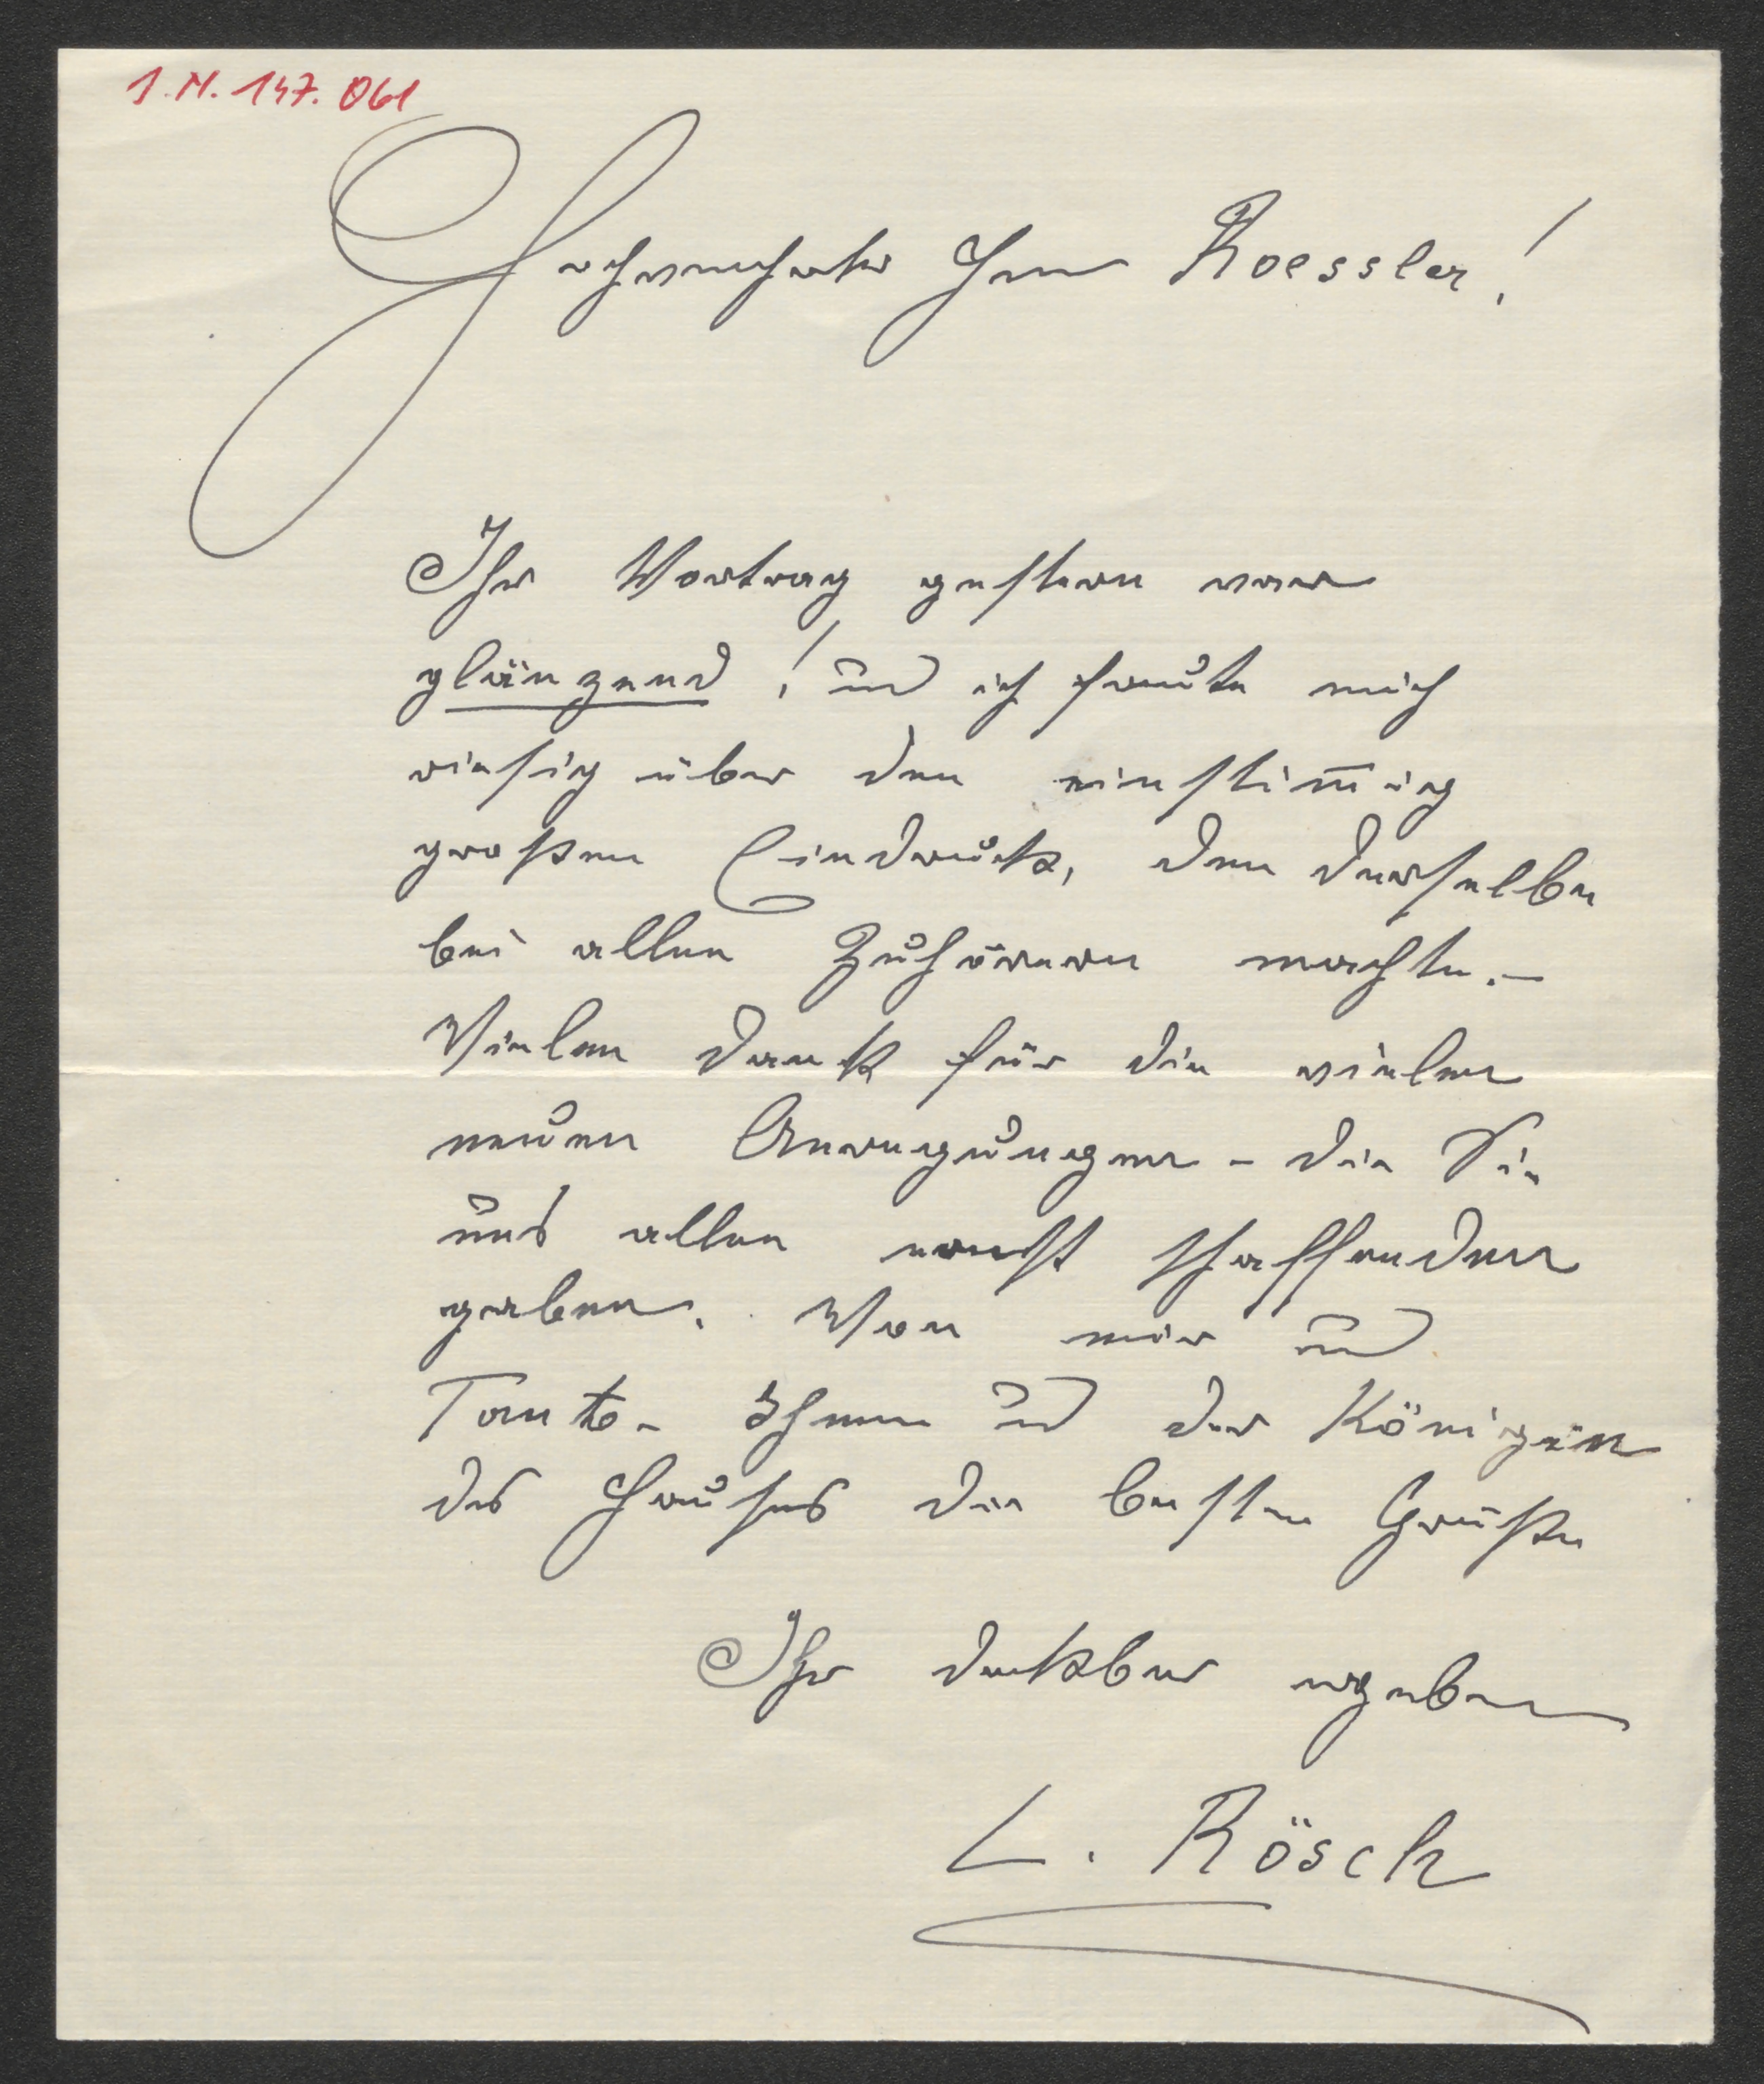 J.N. 147.061
Hochverehrter Herr Roessler!
Ihr Vortrag gestern war
glänzend! und ich freute mich
riesig über den einstim̅ig
großen Eindruck, den derselbe
bei allen Zuhörern machte. –
Vielen Dank für die vielen
neuen Anregungen – die Sie
uns allen ernst schaffenden
gaben. Von mir und
Ihnen und der Königin
des Hauses die besten Grüße
Ihr dankbar ergeben
L. Rösch